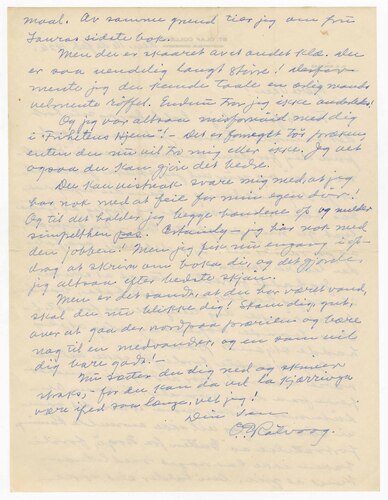 maal. Av samme grund tier jeg om fru
Lauras sidste bok.
Men du er skaaret av et andet klæ. du
er saa uendelig langt større! Derfor
mente jeg du kunde taale en ærlig mands
velmente röffel. Endnu tror jeg ikke anderledes!
Og jeg var altsaa misfornöid med dig
i "Frihetens Hjem"! - Det er
enten du nu vil tro mig eller ikke. Jeg vet
ogsaa du kan gjöre det bedre.
Du kan vistnok svare mig med, at jeg
har nok med at feie for min egen dör!
Og til det holder jeg begge hænderne op og nikker
simpelthen Certainly - jeg har nok med
den jobben! Men jeg fik nu engang i op-
drag at skrive om boka di, og det gjorde
jeg altsaa efter bedste skjön.
Men er det sandt, at du har været vond,
skal du nu blikke dig! Skam dig, gut,
over at gaa der nordpaa prærien og være
nag til en medvandrer, og en som vil
dig bare godt! -
Nu sætter du dig ned og skriver
straks, - for du kan da vel la kjærringa
være ifred saa længe, vet jeg!
Din ven
O E Rölvaag.